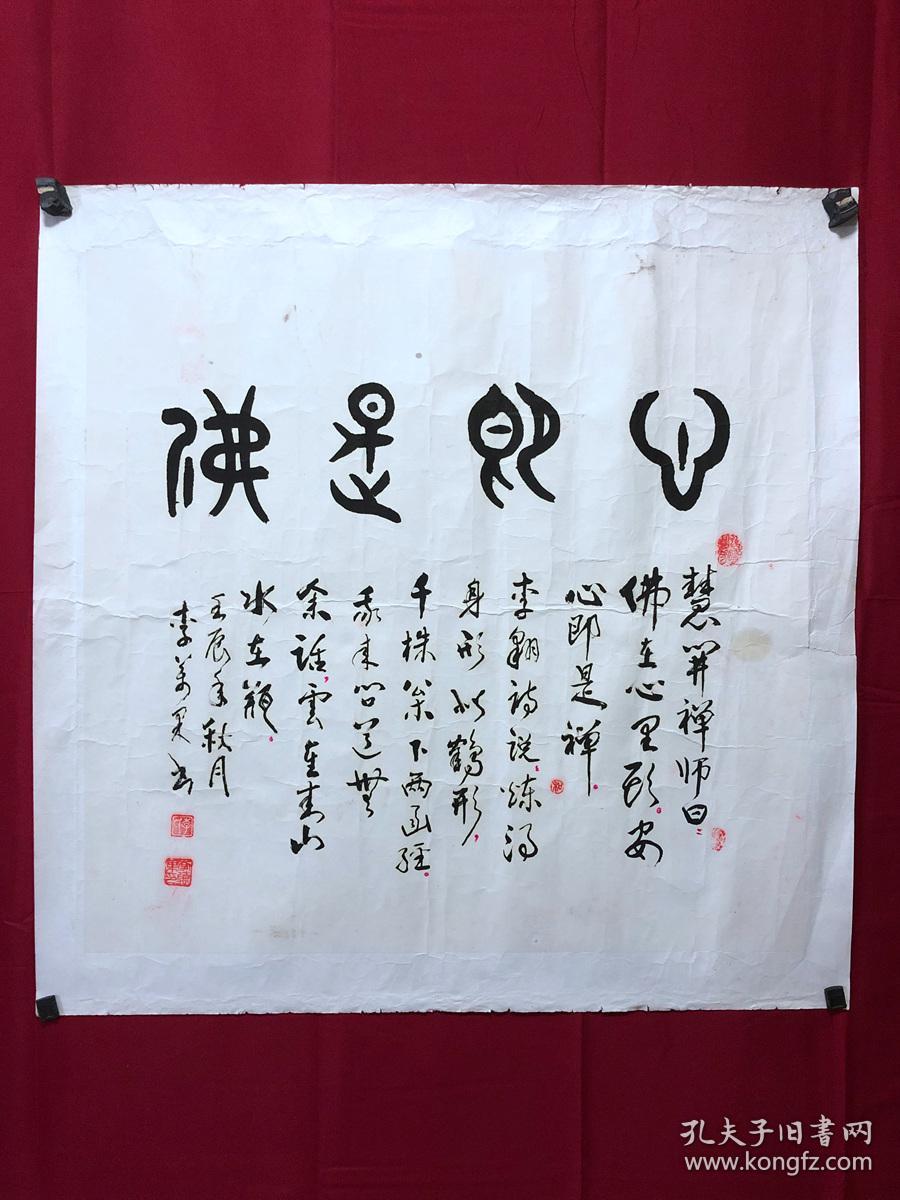 心即是佛
慧開禅师曰:
佛在心里頭。安
心即是禅。
李翱诗说:炼得
身形似鹤形,
千株松下两函经。
我来问道無
余話,雲在青山
水在瓶。
壬辰年秋月
李美果书
孔夫子旧書网
www.kongfz.com